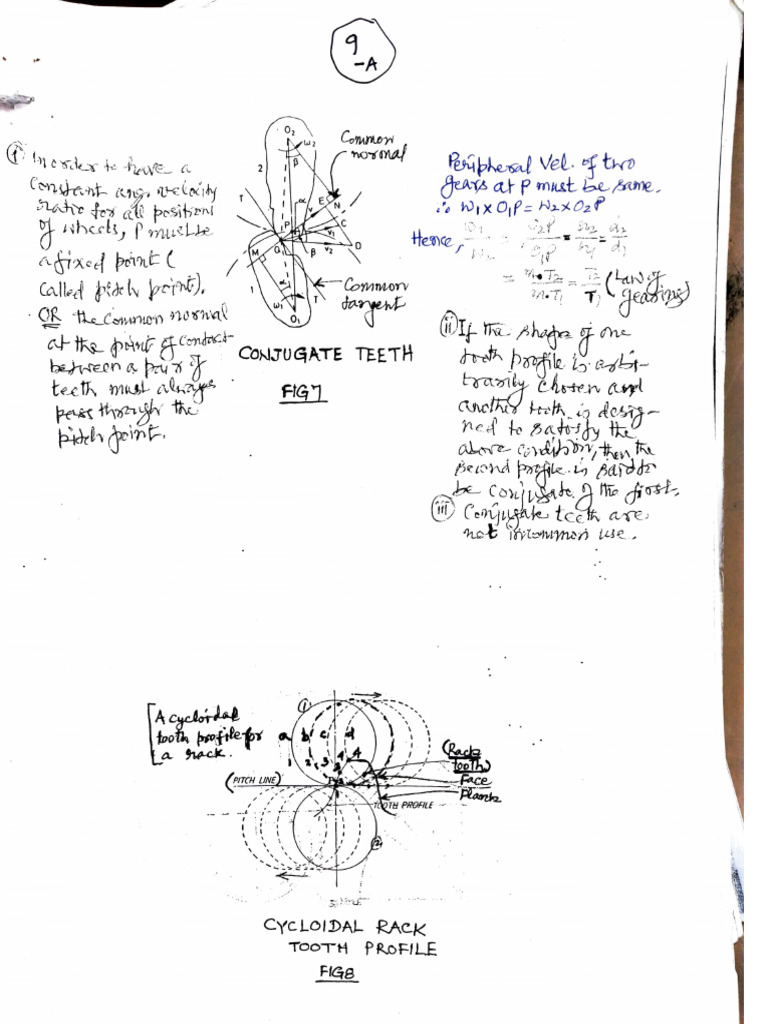 9
-A
(i) In order to have a
constant ang. velocity
ratio for all positions
of wheels, P must be
a fixed point (
called pitch point).
OR the common normal
at the point of contact
between a pair of
teeth must always
pass through the
pitch point.
O2
ω2
β
2
Common
normal
T
α
E
N
C
P
V
V1
Q
M
D
V2
β
α
1
ω1
T
O1
Common
tangent
CONJUGATE TEETH
FIG7
Peripheral Vel. of two
gears at P must be same.
∴ W1 x O1P = W2 x O2P
Hence, W1/W2 = O2P/O1P =
= T2/T1 (Law of
gearing)
(ii) If the shape of one
tooth profile is arbi-
trarily chosen and
another tooth is desig-
ned to satisfy the
above condition, then the
second profile is said to
be conjugate of the first.
(iii) Conjugate teeth are
not in common use.
A cycloidal
tooth profile for
a rack.
1
a b c d
1 2 3 4 4
(PITCH LINE)
P
(Rack
tooth)
Face
Flank
TOOTH PROFILE
2
CYCLOIDAL RACK
TOOTH PROFILE
FIG8